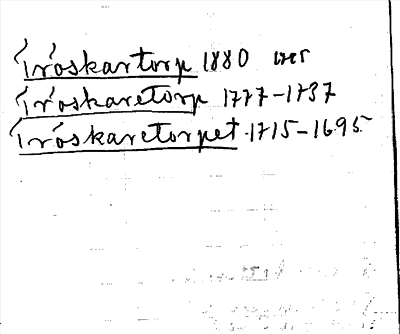 Tröskartorp 1880
Tröskaretorp 1777-1737
Tröskaretorpet 1715-1695